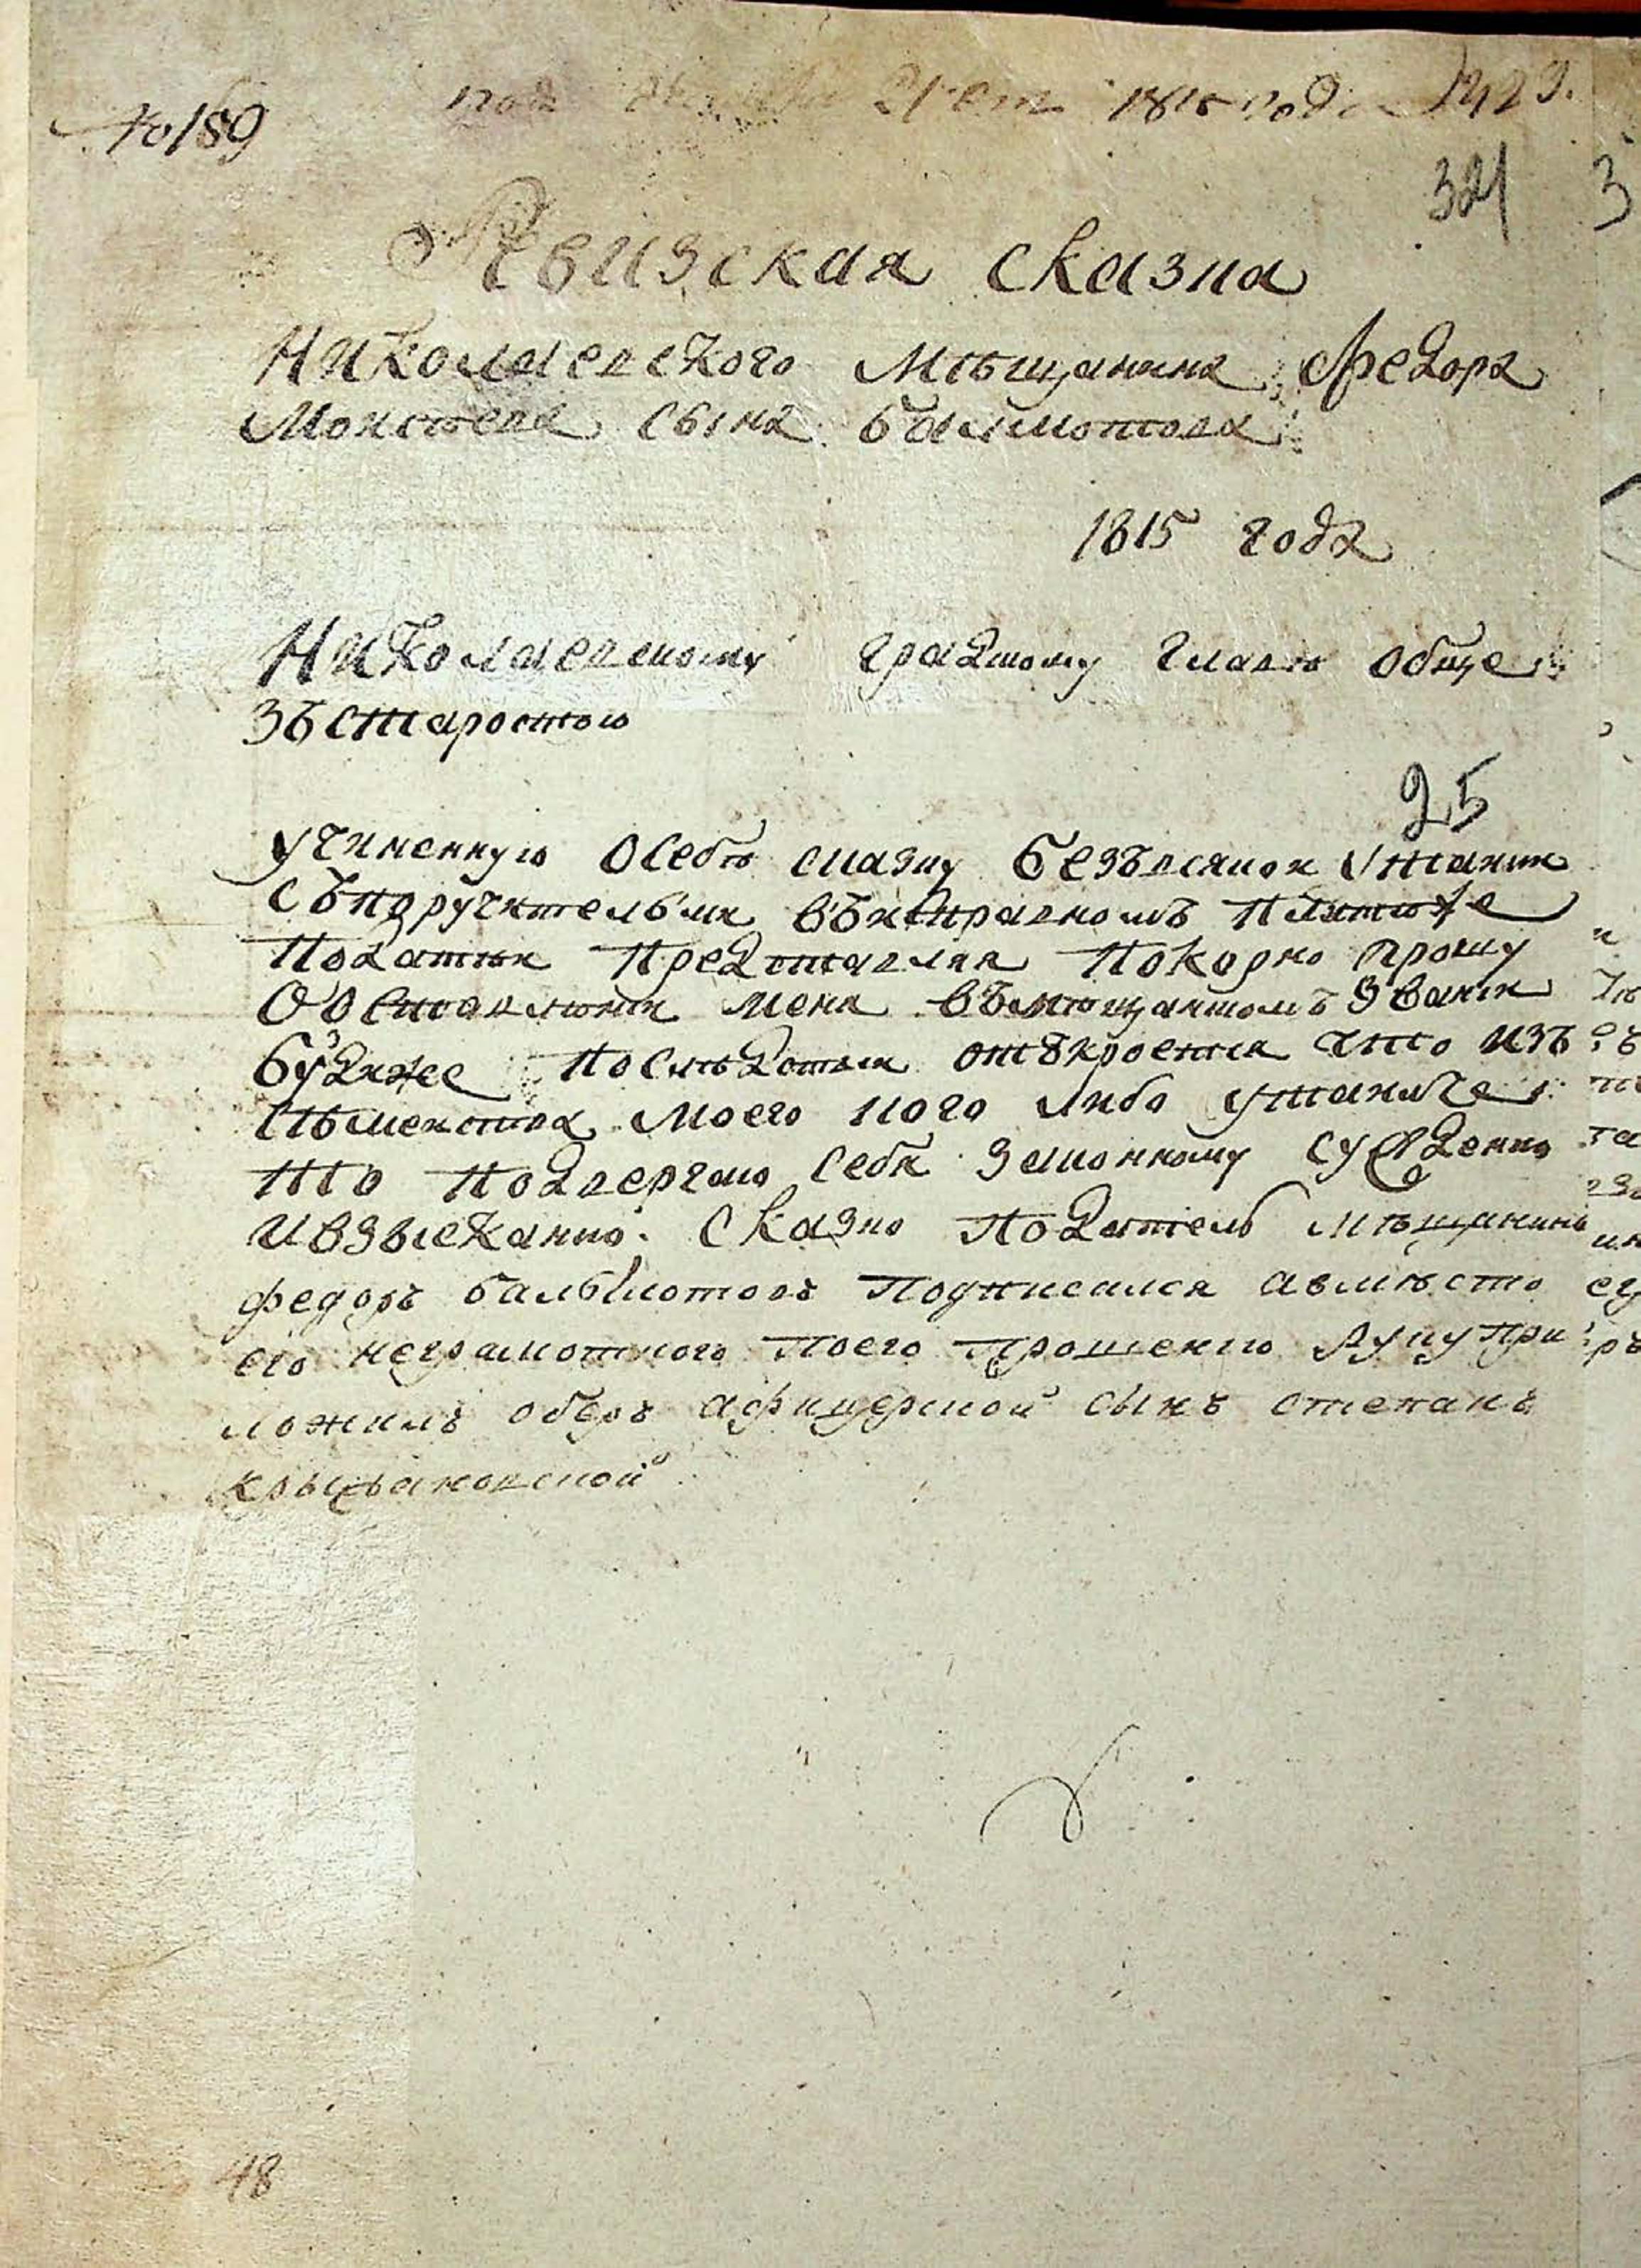 № 189
21 1815 года
321
Ревизская сказка
Николаевского Мѣщанина Федора
сына Балмотова
1815 года
Николаевскому градскому главѣ обще
зъстаростою
25
учиненную Осебѣ сказку безъвсякои Утаики
съпоручительми въисправномъ платеже
Податеи Представляя Покорно прошу
Обоставлении меня въмѣщанскомъ звании
будиже Послѣдствии отъкроется что изъ
Сѣмеиства моего кого либо утаилъ
то подвергаю себя законному суждению
ивзысканию. Сказко Податель Мѣщанинъ
федоръ балымотовъ Подписался авмѣсто
его неграмотного поего прошению Руку при
ложилъ оберъ афицерской сынъ степанъ
крыжановской
48